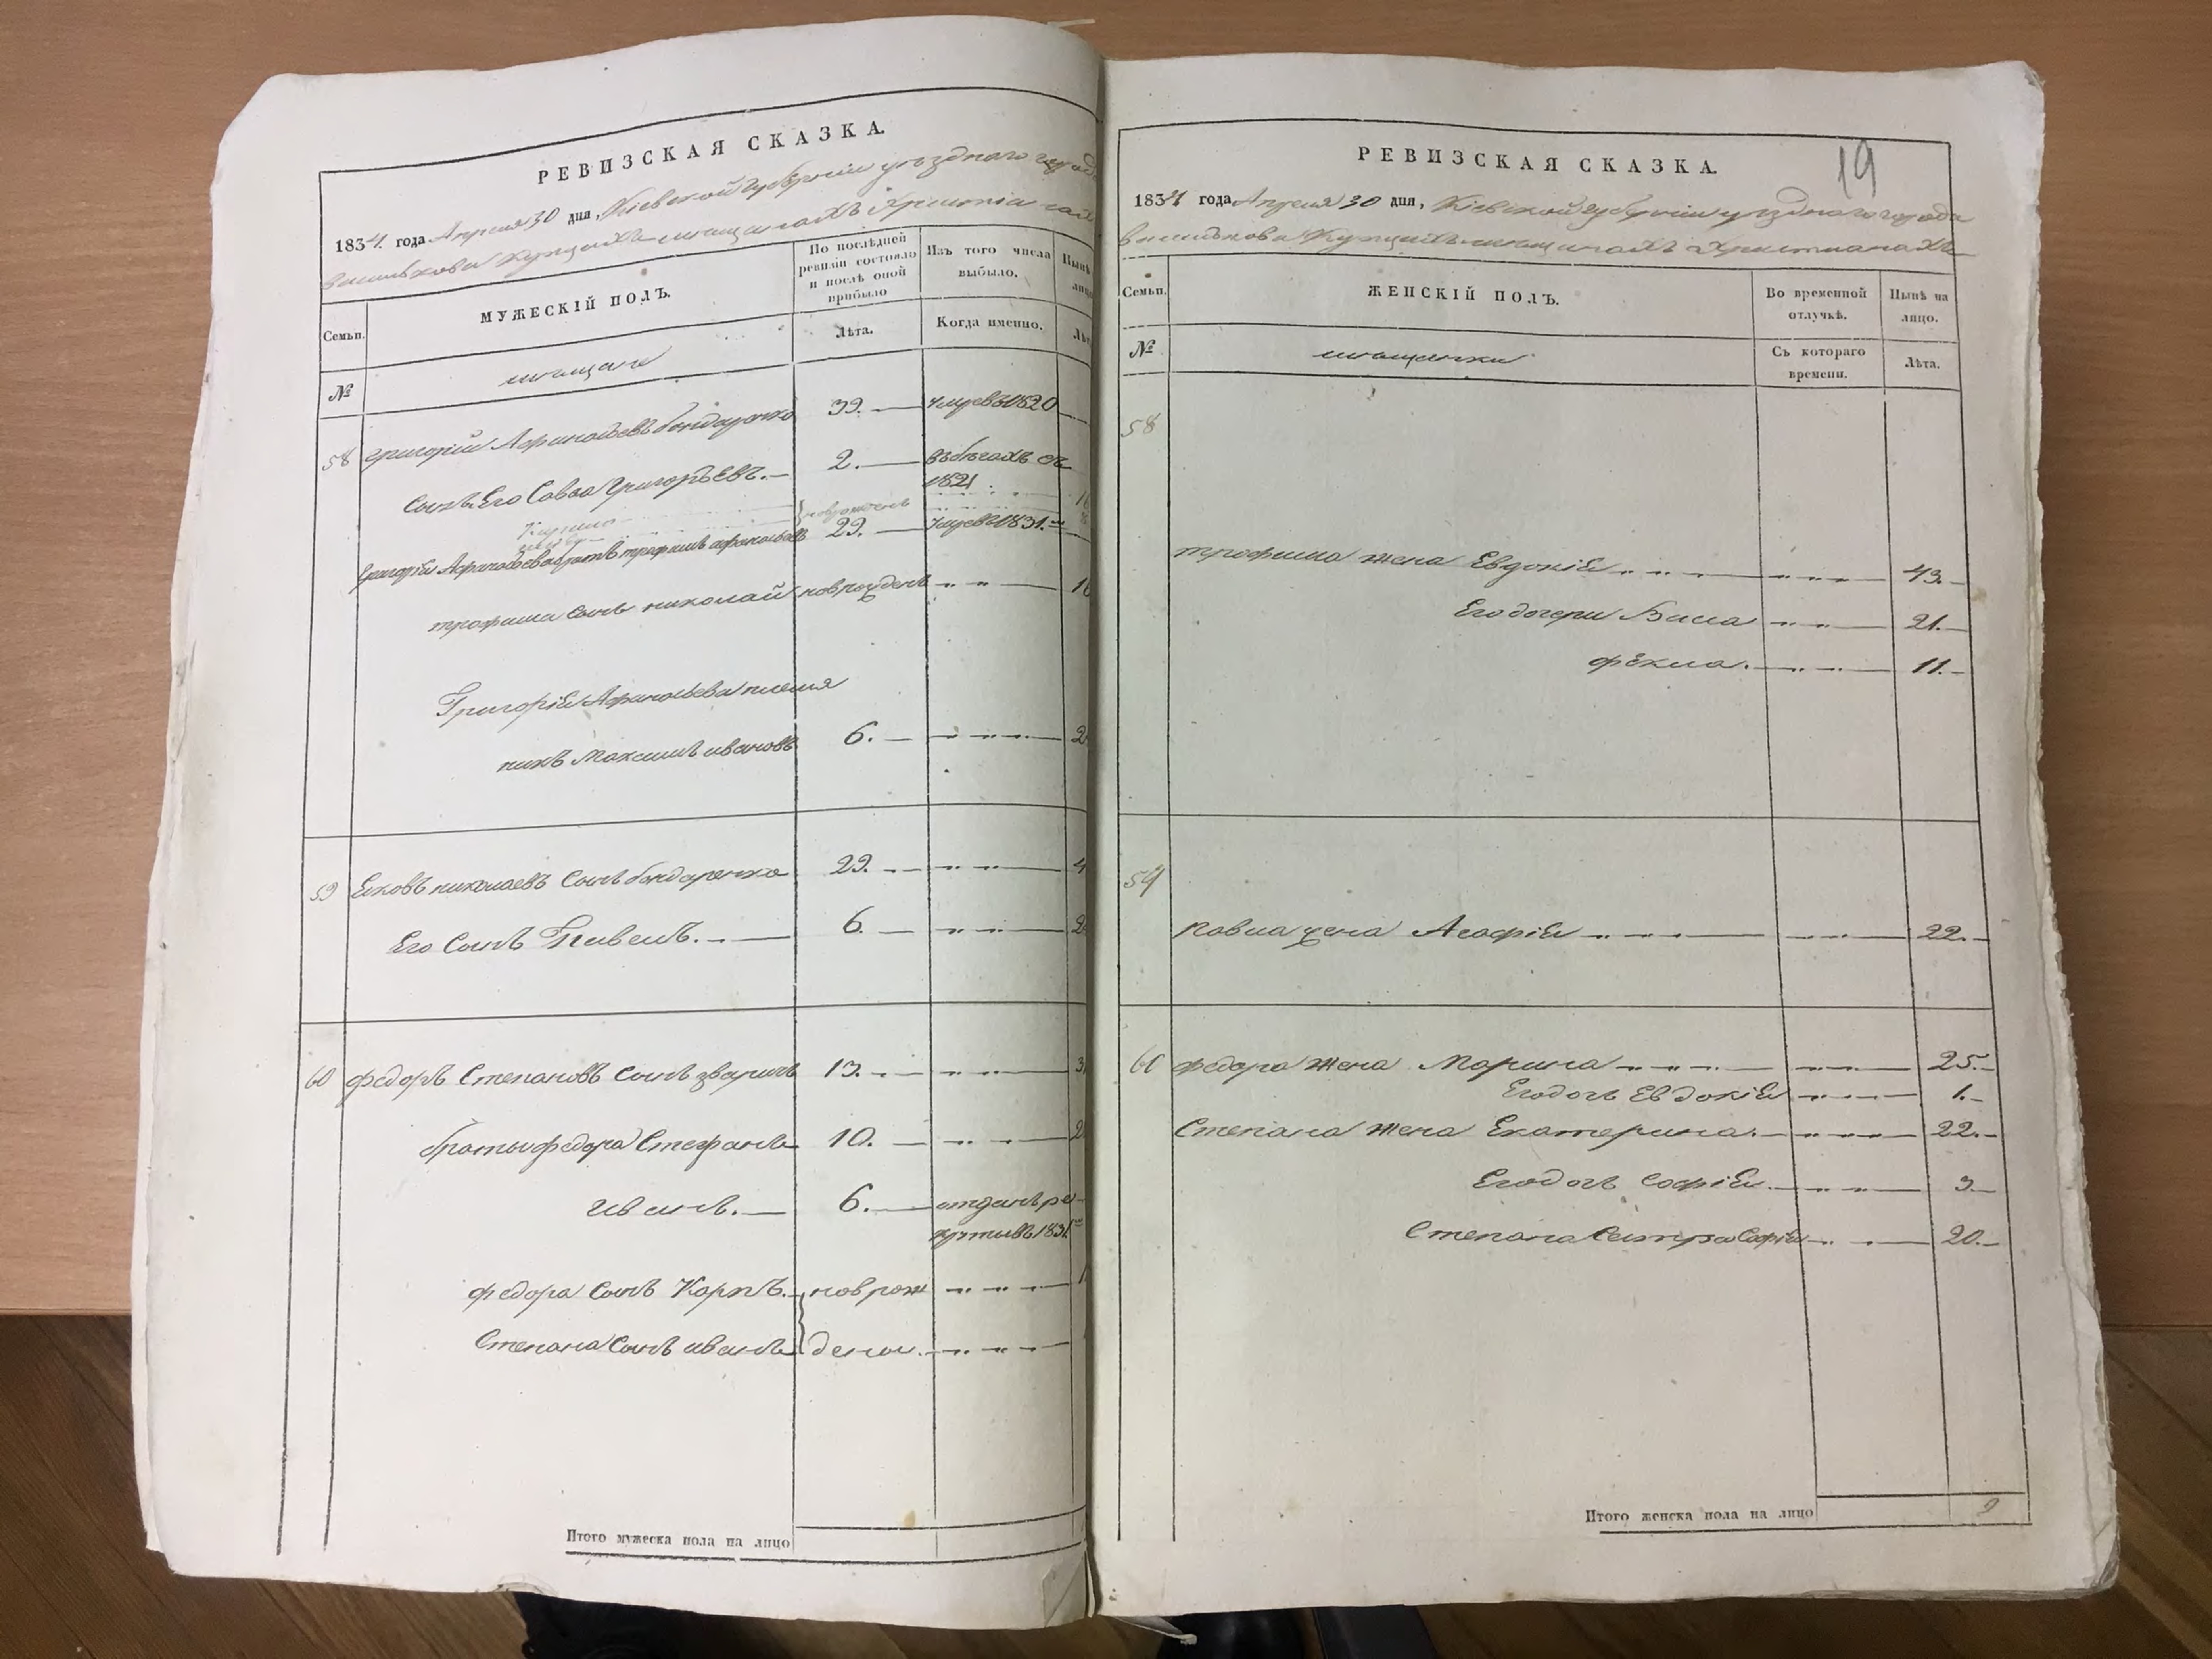 РЕВИЗСКАЯ СКАЗКА.
1834. года Апреля 30 дня, Кіевской губерніи уезднаго города
василькова Купцахъ мещанахъ Христіа
Семьи.
МУЖЕСКІЙ ПОЛЪ.
По послѣдней ревизіи состояло и послѣ оной прибыло
Изъ того числа выбыло.
Нынѣ
лицо
№
мещане
Лѣта.
Когда именно.
58 Григорій Афанасьевъ бондаренко 39. умре въ 1820
сынъ Его Савва Григорьевъ. 2. въ бегахъ съ
1821
новрожденъ
Григорія Афанасьева братъ трофимъ афанасьевъ 29. умре 1831.
трофима сынъ николай новрожденъ
Григорія Афанасьева племя
никъ Максимъ ивановъ 6.
59 Яковъ николаевъ сынъ бондаренко 29.
Его сынъ Павелъ. 6.
60 федоръ Степановъ сынъ зваричъ 13.
братья федора Стефанъ 10.
иванъ. 6. отданъ ре
круты въ 1831.
федора сынъ Карпъ. новрож
Степана сынъ иванъ дены.
Итого мужеска пола на лицо
19
РЕВИЗСКАЯ СКАЗКА.
1834 года Апреля 30 дня, Кіевской губерніи уезднаго города
василькова Купцахъ мещанахъ Христианахъ
Семьи.
ЖЕНСКІЙ ПОЛЪ.
Во временной отлучкѣ.
Нынѣ на лицо.
№
мещанки
Съ котораго времени.
Лѣта.
58
трофима жена Евдокія 43.
Его дочери Васа 21.
фекла. 11.
59
Павла жена Агафія 22.
60 федора жена Марина 25.
Его дочь Евдокія 1.
Степана жена Екатерина. 22.
Его дочь Софія 3
Степана Сестра Софія 20.
Итого женска пола на лицо 9